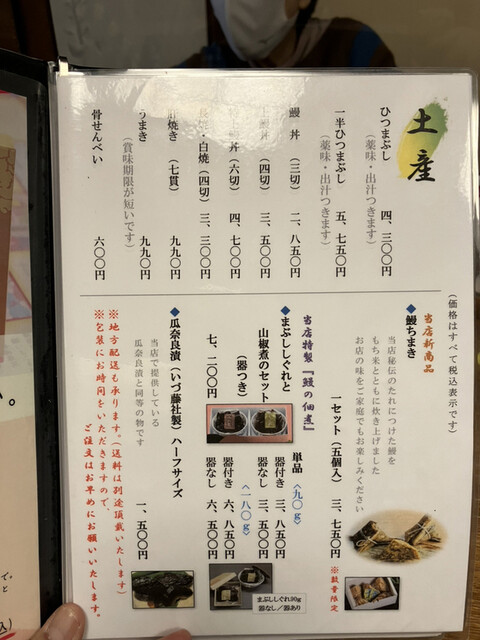 土産
(価格はすべて税込表示です)
ひつまぶし 四、三〇〇円
(薬味・出汁つきます)
一半ひつまぶし 五、七五〇円
(薬味・出汁つきます)
鰻丼 (三切) 二、八五〇円
(四切) 三、五〇〇円
丼 (六切) 四、七〇〇円
・白焼 (四切) 三、三〇〇円
焼き (七貫) 九九〇円
うまき 九九〇円
(賞味期限が短いです)
骨せんべい 六〇〇円
当店新商品
◆鰻ちまき
当店秘伝のたれにつけた鰻を
もち米とともに炊き上げました
お店の味をご家庭でもお楽しみください
一セット(五個入) 三、七五〇円
※数量限定
当店特製『鰻の佃煮』
単品
〈九〇g〉
器付き 三、八五〇円
器なし 三、五〇〇円
〈一八〇g〉
器付き 六、八五〇円
器なし 六、五〇〇円
◆まぶししぐれと
山椒煮のセット
(器つき)
七、二〇〇円
まぶししぐれ90g
器なし/器あり
◆瓜奈良漬(いづ藤社製)ハーフサイズ
当店で提供している
瓜奈良漬と同等の物です
一、五〇〇円
※地方配送も承ります。(送料は別途頂戴いたします)
※包装にお時間をいただきますので、
ご注文はお早めにお願いいたします。